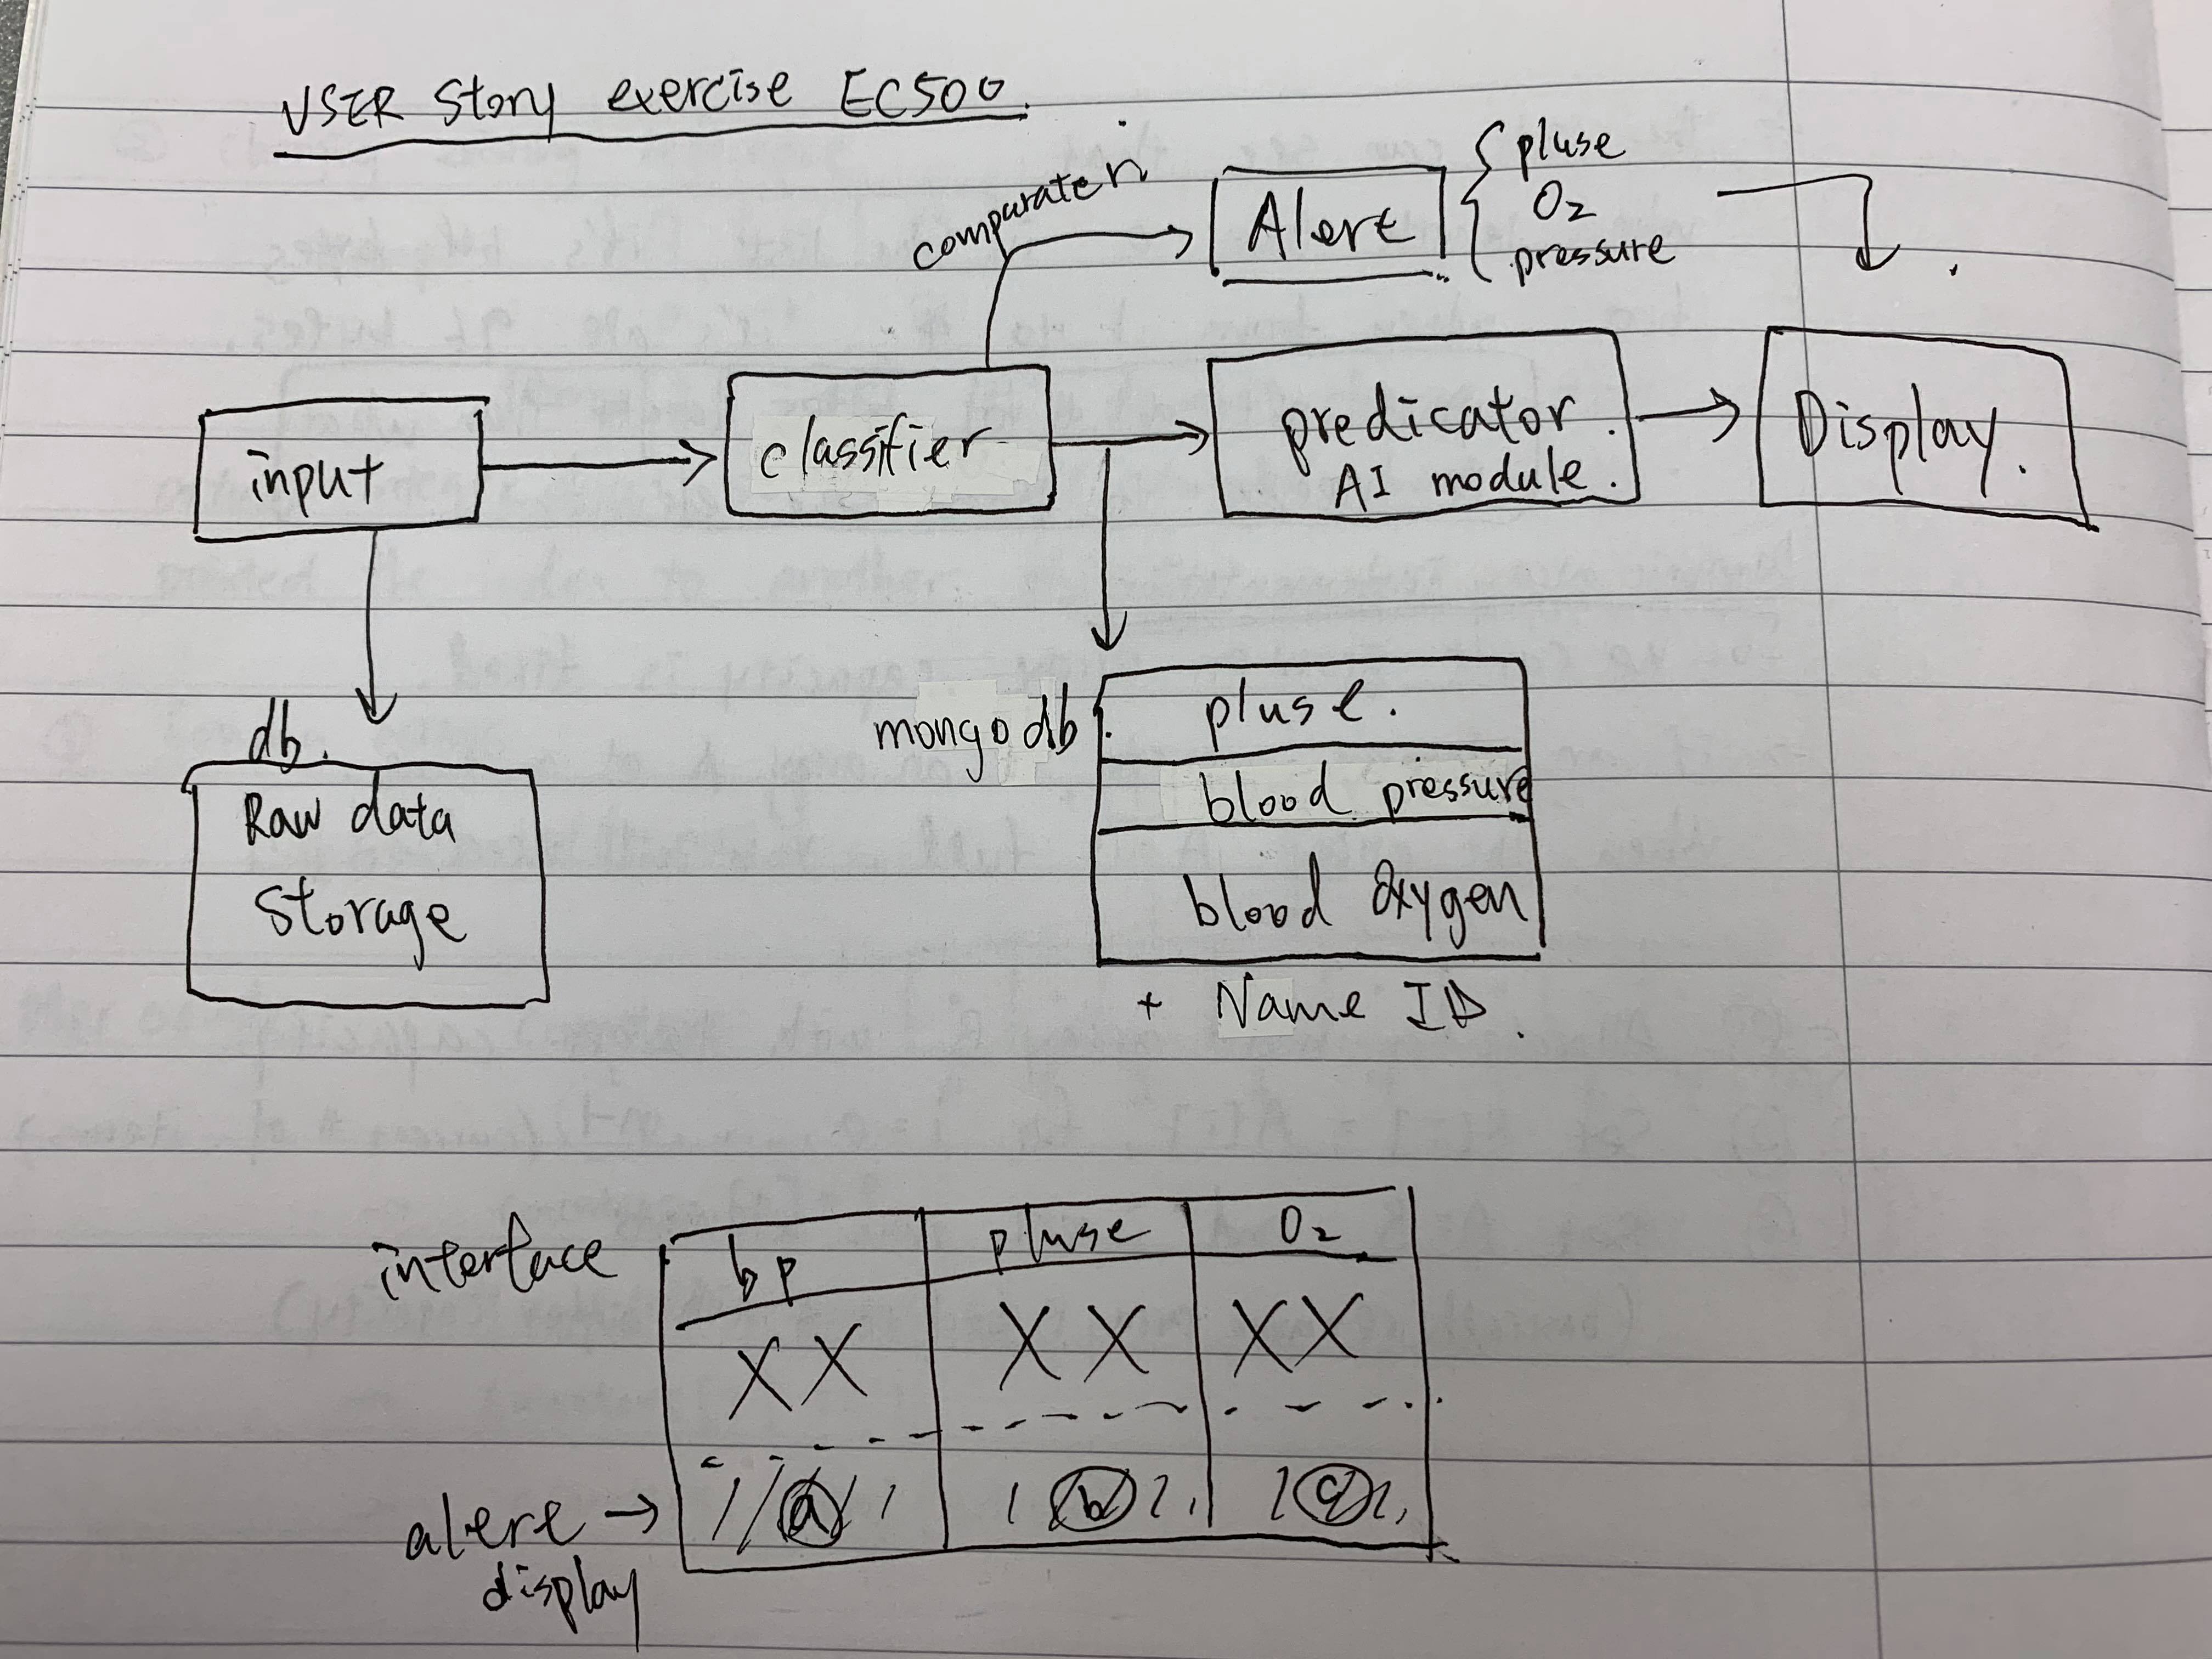 USER Story exercise EC500.
comparate n
Alert
pluse
O2
pressure
input
classifier
predicator.
AI module.
Display.
db.
Raw data
Storage
mongo db
pluse.
blood pressure
blood oxygen
+ Name ID.
interface
bp
pluse
O2
XX
XX
XX
alert →
display
a
b
c